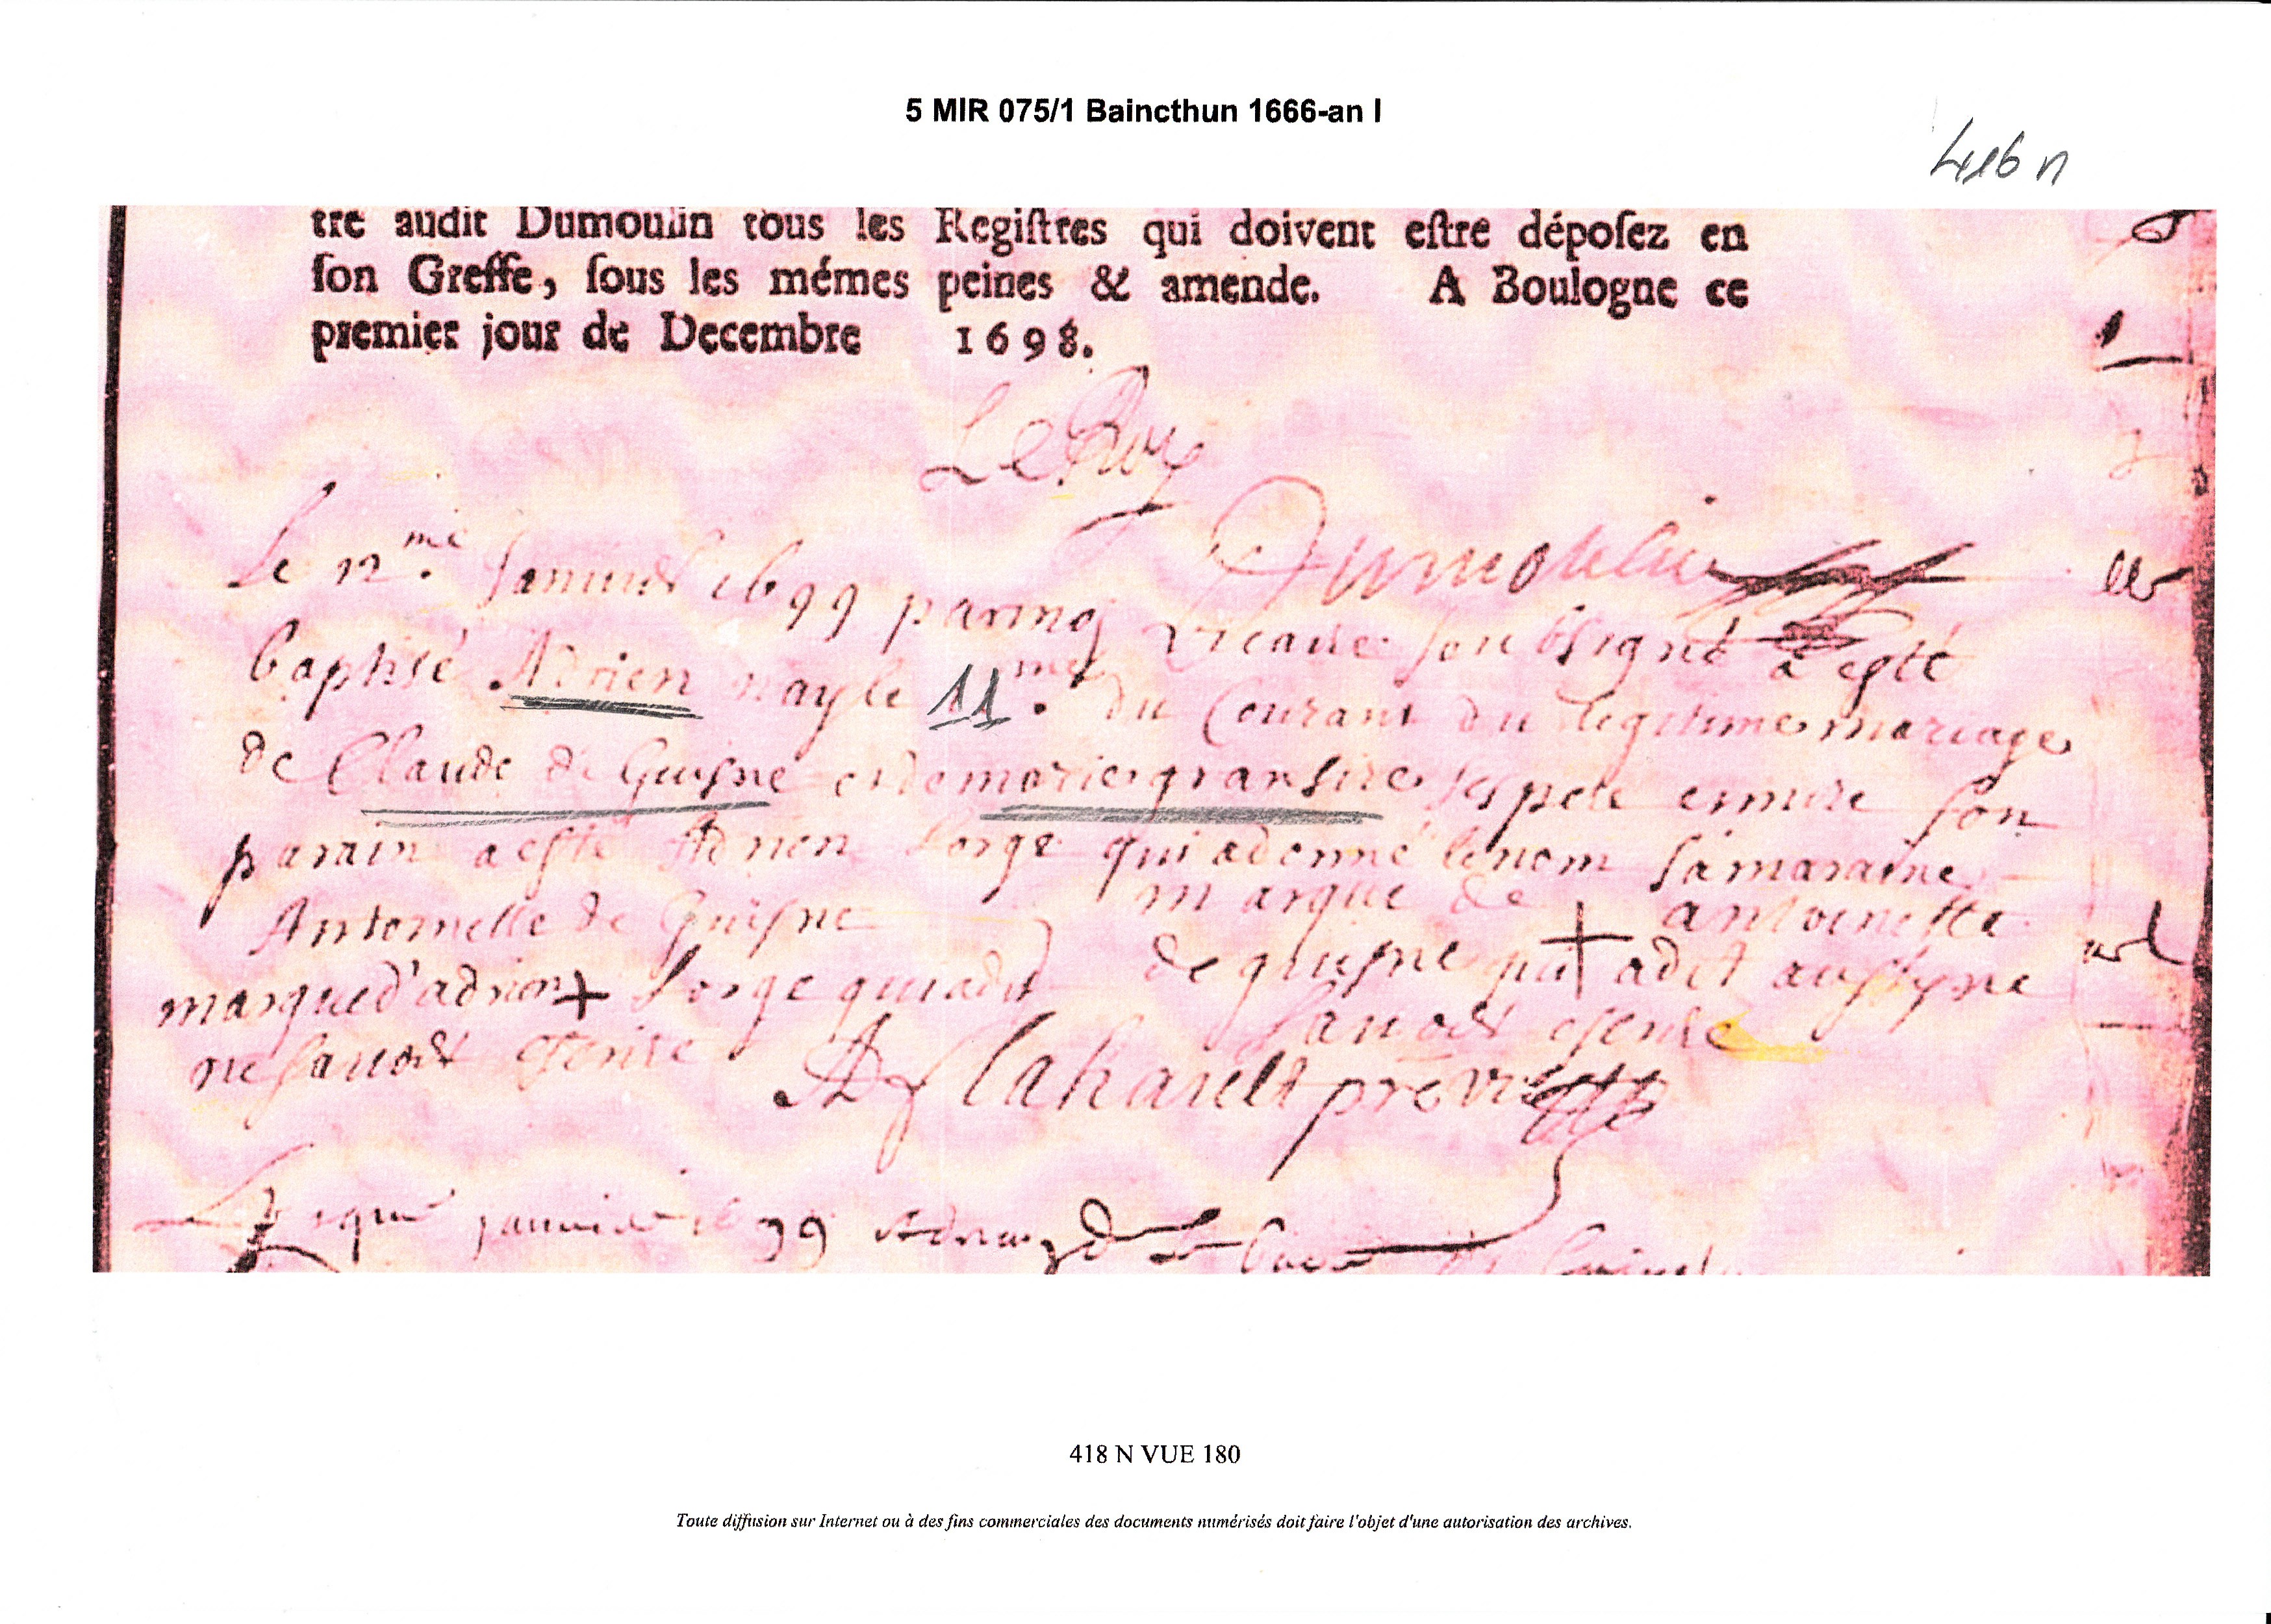 5 MIR 075/1 Baincthun 1666-an I
416 n
tre audit Dumoulin tous les Regiſtres qui doivent eſtre dépoſez en
ſon Greffe, ſous les mémes peines & amende. A Boulogne ce
premier jour de Decembre 1698.
LeRoy
Dumoulin
Le 12.me Janvier 1699 par moy Vicaire soubsigné a esté
baptisé Adrien nay le 11.me du Courant du legitime mariage
de Claude de Guisne et de marie gransire ses pere et mere son
parain a esté Adrien Lorge qui a donné le nom sa maraine
Antoinette de Guisne
marque de + antoinette
de guisne qui a dit ausy ne
savoir escrire
marque d'adrien + Lorge qui a dit
ne savoir escrire
A Flahault
janvier 1699
418 N VUE 180
Toute diffusion sur Internet ou à des fins commerciales des documents numérisés doit faire l'objet d'une autorisation des archives.